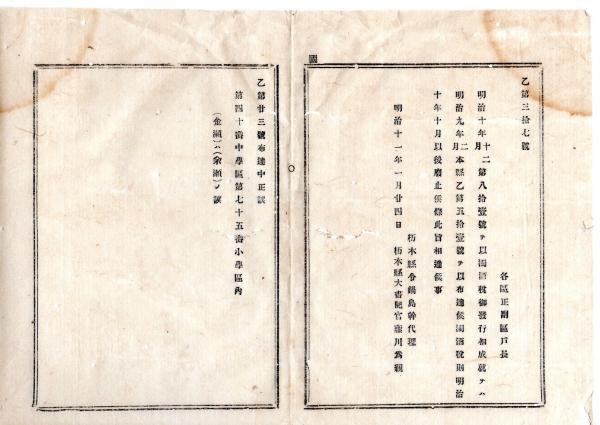 國
乙第三拾七號
各區正副區戶長
明治十年十二月第八拾壹號ヲ以濁酒稅御發行相成就テハ
明治九年二月本縣乙第五拾壹號ヲ以布達候濁酒稅則明治
十年十月以後廢止候條此旨相達候事
栃木縣令鍋島幹代理
明治十一年一月廿四日 栃木縣大書記官藤川爲親
乙第廿三號布達中正誤
第四十番中學區第七十五番小學區內
(金瀬)ハ(余瀬)ノ誤